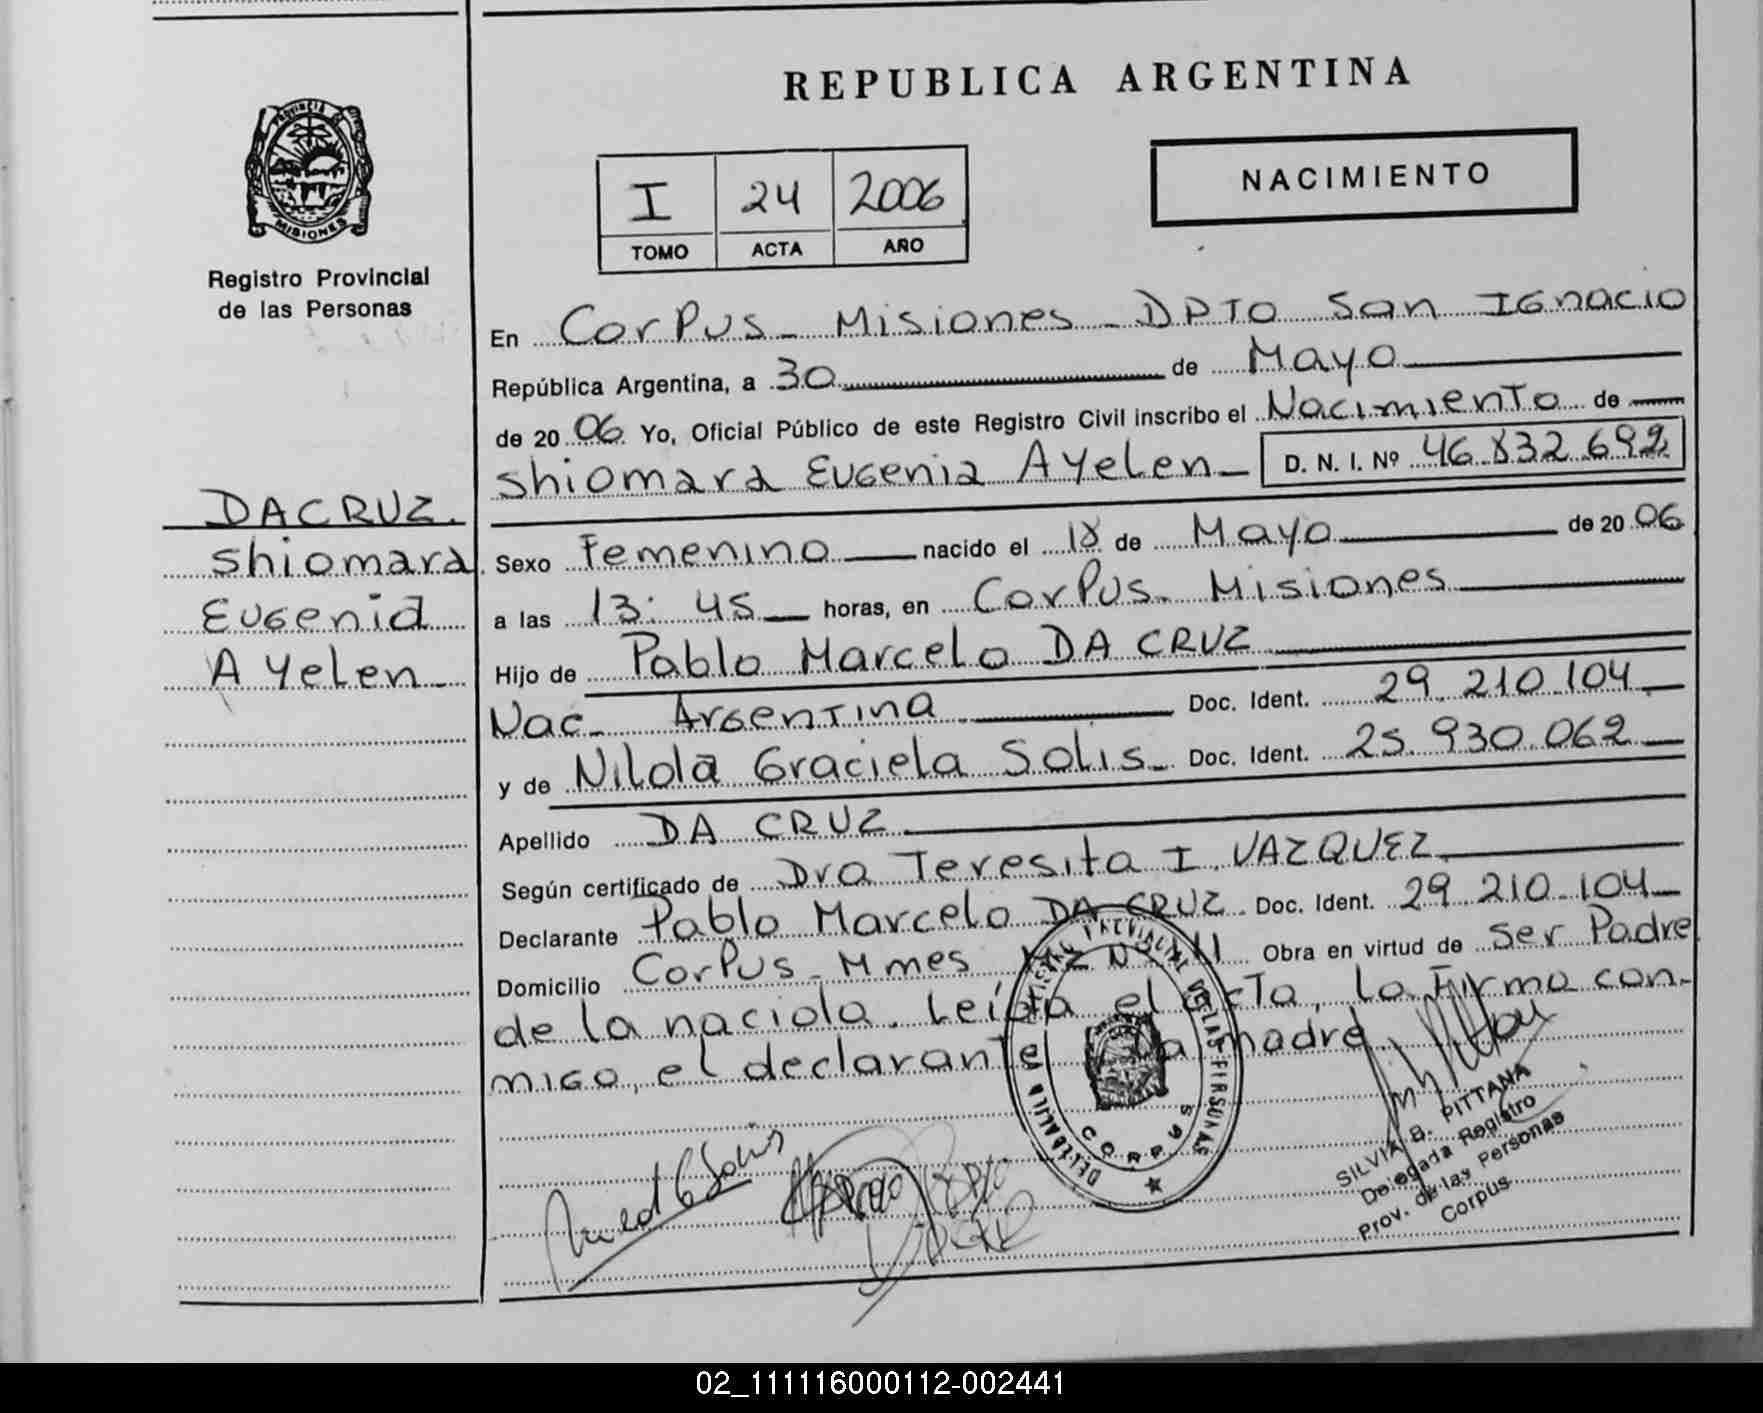 REPUBLICA ARGENTINA
PROVINCIA DE
MISIONES
Registro Provincial
de las Personas
I 24 2006
TOMO ACTA AÑO
NACIMIENTO
En Corpus - Misiones - DPTO San Ignacio
República Argentina, a 30 de Mayo
de 20 06 Yo, Oficial Público de este Registro Civil inscribo el Nacimiento de
Shiomara Eugenia Ayelen - D. N. I. Nº 46.832.692
DA CRUZ.
Shiomara
Eugenia
Ayelen -
Sexo Femenino nacido el 18 de Mayo de 20 06
a las 13:45 horas, en Corpus. Misiones
Hijo de Pablo Marcelo DA CRUZ
Nac. Argentina Doc. Ident. 29.210.104
y de Nilda Graciela Solis - Doc. Ident. 25.930.062
Apellido DA CRUZ
Según certificado de Dra Teresita I. VAZQUEZ
Declarante Pablo Marcelo DA CRUZ Doc. Ident. 29.210.104
Domicilio Corpus - Mnes Mz Nº Obra en virtud de Ser Padre
de la nacida. Leída el acta, la Firma con-
migo, el declarante y la madre
CORPUS
SILVIA B. PITTANA
Delegada Registro
Prov. de las Personas
Corpus
02_111116000112-002441